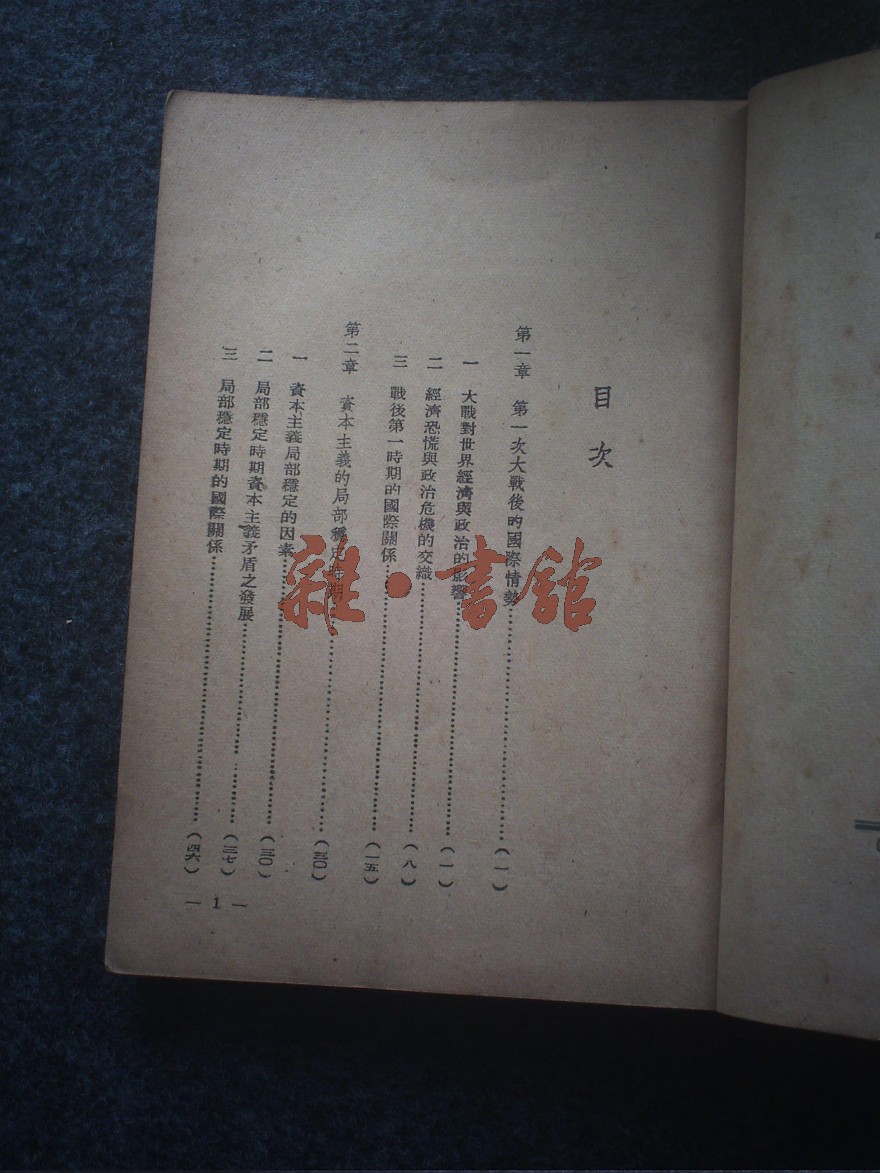 目次
第一章 第一次大戰後的國際情勢……(一)
一 大戰對世界經濟與政治的影響……(一)
二 經濟恐慌與政治危機的交織……(八)
三 戰後第一時期的國際關係……(一五)
第二章 資本主義的局部穩定時期……(三〇)
一 資本主義局部穩定的因素……(三〇)
二 局部穩定時期資本主義矛盾之發展……(三七)
三 局部穩定時期的國際關係……(四六)
— 1 —
雜·書館